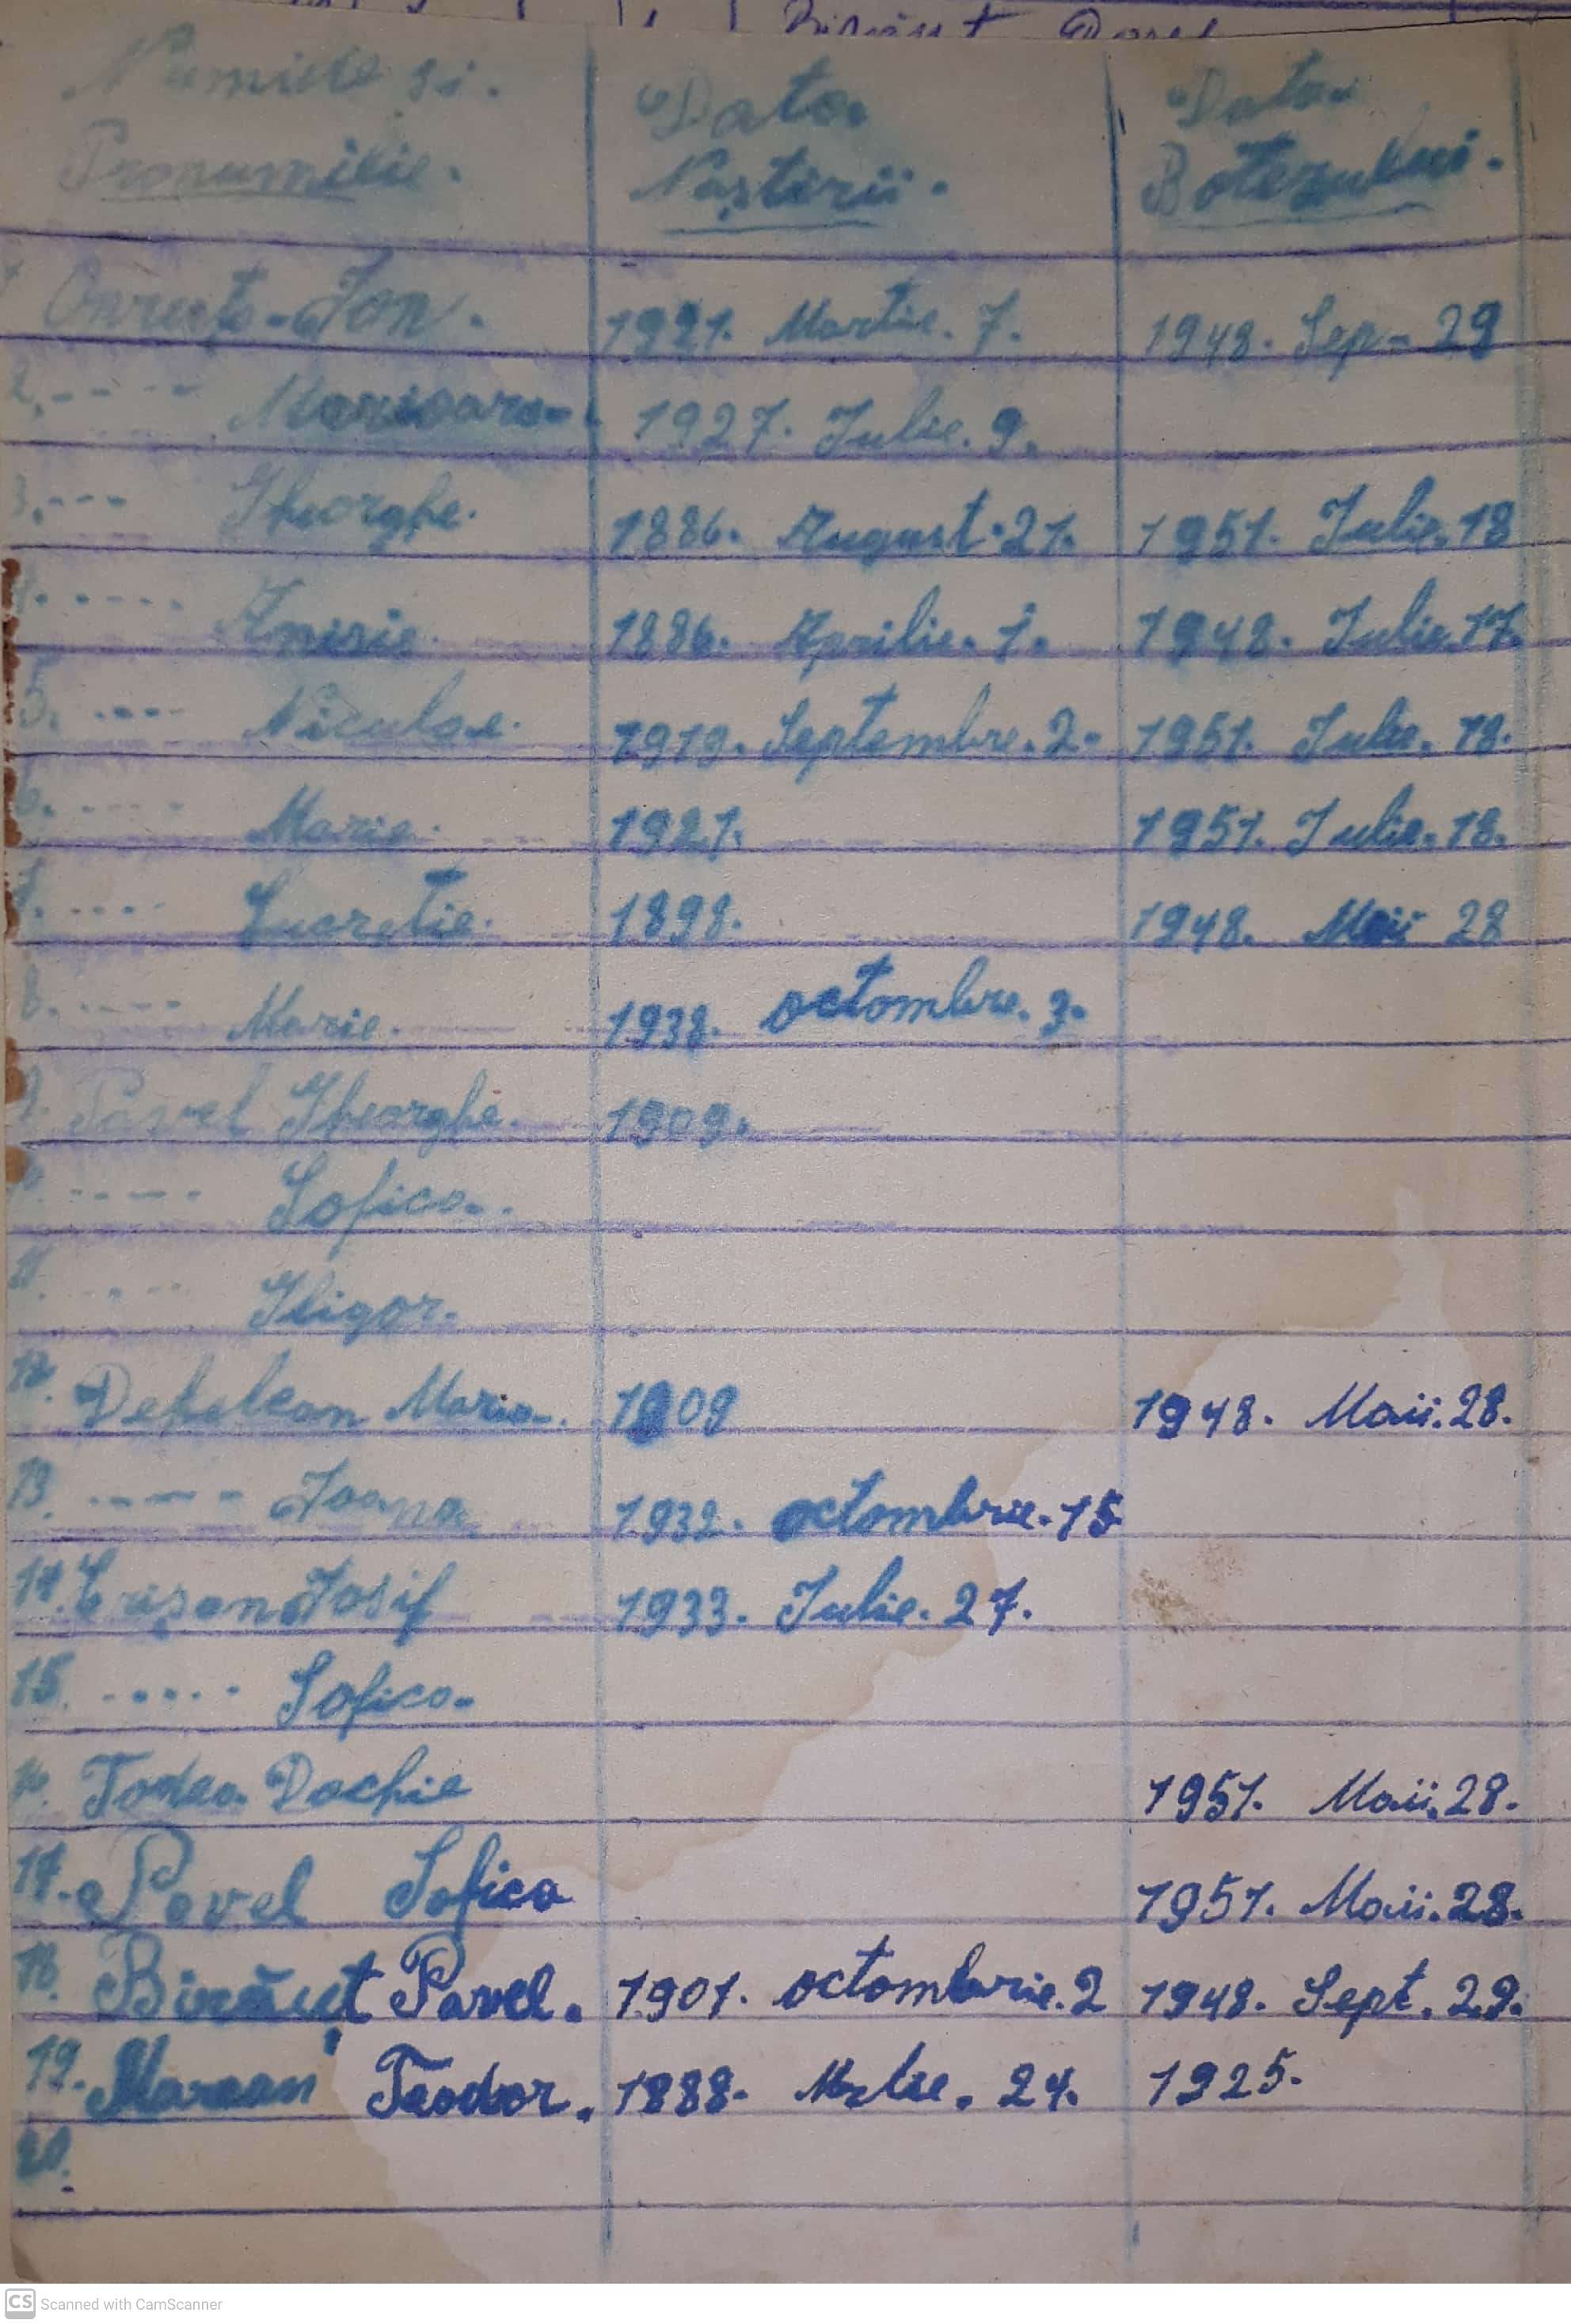 Birăuț Pavel
Numilie si. Data. Data.
Pronumilie. Naștirii. Botezului.
Onruț. Ion. 1921. Martie. 7. 1948. Sep. 29
2. ---- Marioara. 1927. Julie. 9.
3. --- Gheorghe. 1886. August. 21. 1951. Julie. 18
4. ----- Anisie. 1886. Aprilie. 1. 1948. Julie. 17.
5. ---- Niculae. 1919. Septembre. 2. 1951. Julie. 18.
6. ---- Marie. 1921. 1951. Julie. 18.
7. ---- Lucretie. 1898. 1948. Maii 28
8. ---- Marie. 1938. octombre. 3.
9. Pavel Gheorghe. 1909.
10. ----- Sofica.
11. ---- Gligor.
12. Dehelean Maria. 1909 1948. Maii. 28.
13. ---- Ioana 1932. octombrie. 15
14. Crișan Iosif 1933. Julie. 27.
15. ----- Sofica.
16. Todea. Dochie 1951. Maii. 28.
17. Pavel Sofica 1951. Maii. 28.
18. Birăuț Pavel. 1901. octombrie. 2 1948. Sept. 29.
19. Marean Teodor. 1888. 24. 1925.
20.
CS Scanned with CamScanner